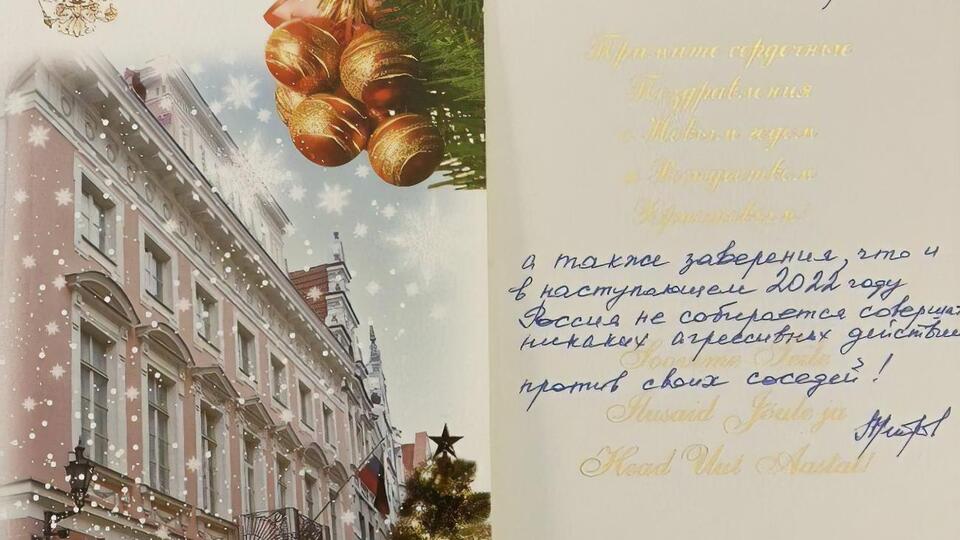 Примите сердечные
Поздравления
с Новым годом
и Рождеством
Христовым!
а также заверения, что и
в наступающем 2022 году
Россия не собирается соверша
никаких агрессивных действи
против своих соседей!
Soovime Teile
Ilusaid Jõule ja
Head Uut Aastat!